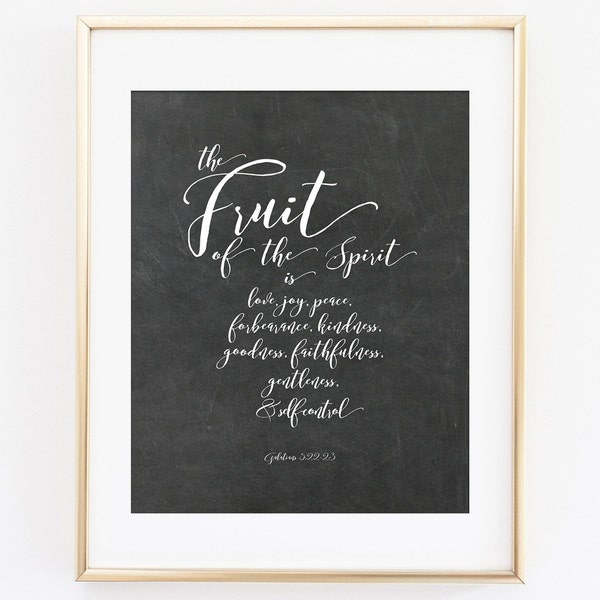 the
Fruit
of the Spirit
is
love, joy, peace,
forbearance, kindness,
goodness, faithfulness,
gentleness,
& self-control
Galatians 5:22-23